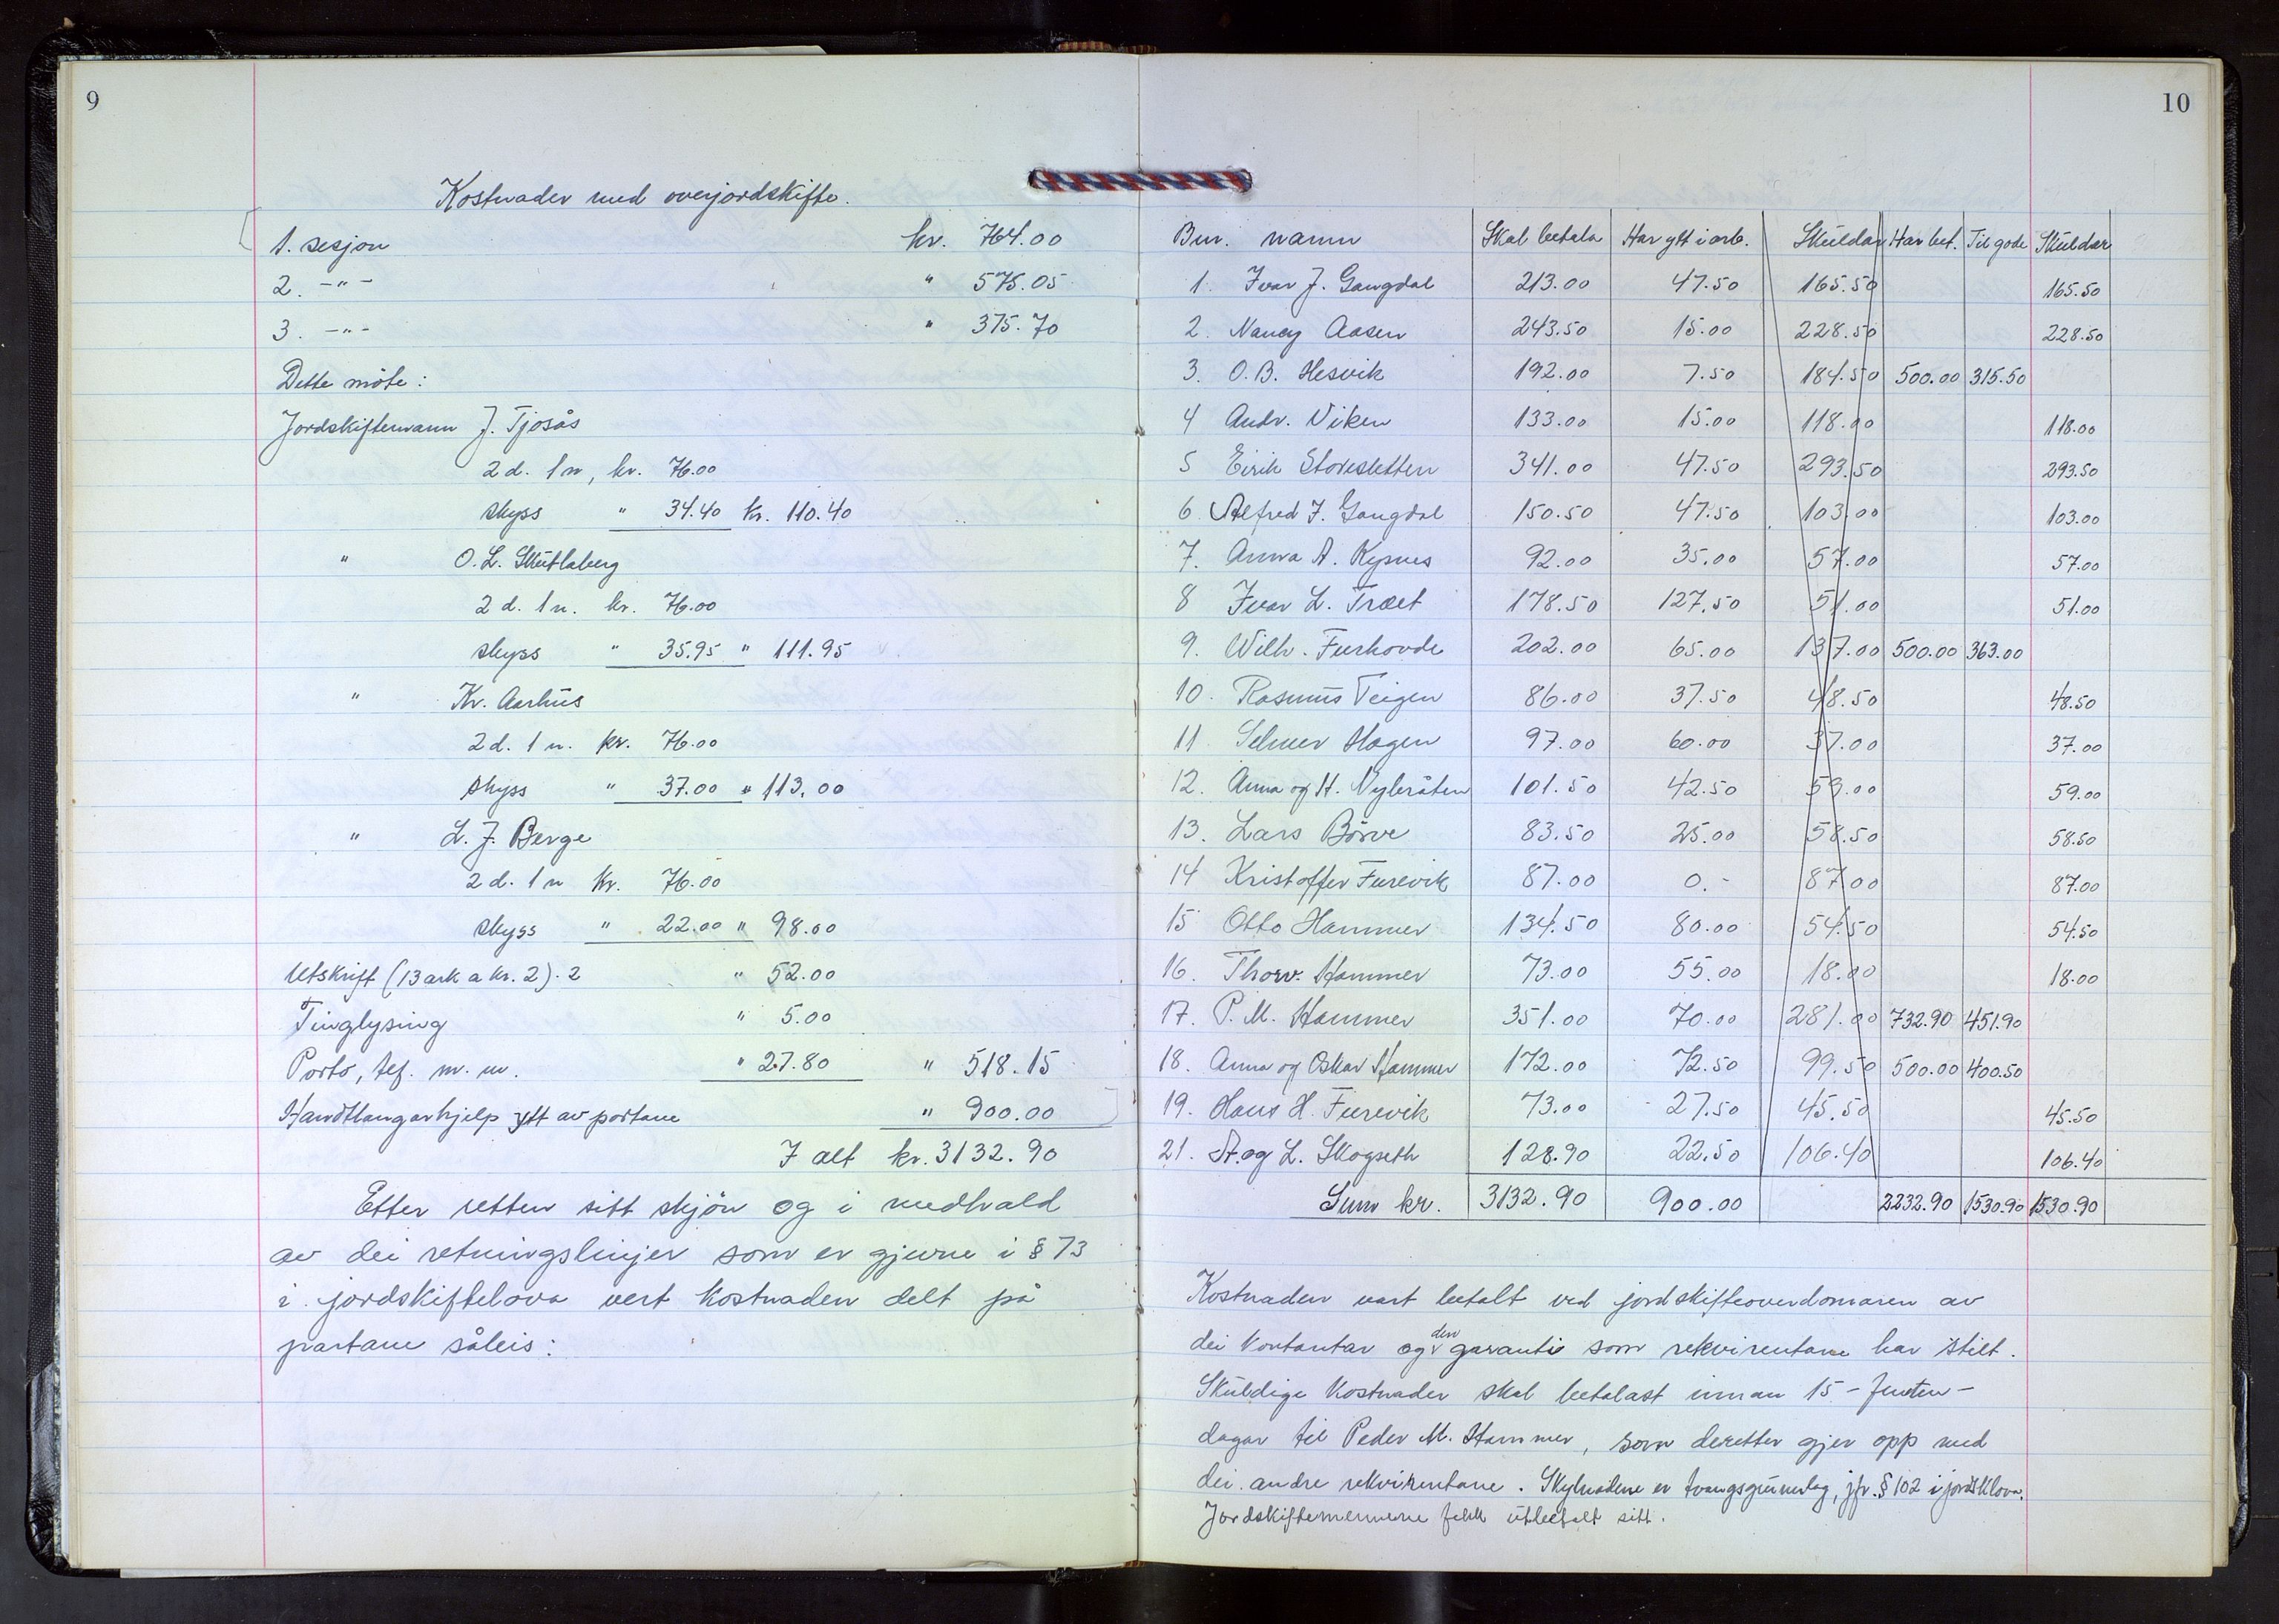 9
Kostnader med overjordskifte.
1. sesjon kr. 764.00
2. -"- " 575.05
3. -"- " 375.70
Dette møte:
Jordskiftemann J. Tjosås
2 d. 1 n, kr. 76.00
skyss " 34.40 kr. 110.40
" O. L. Skutlaberg
2 d. 1 n. kr. 76.00
skyss " 35.95 " 111.95
" Kr. Aarhus
2 d. 1 n. kr. 76.00
skyss " 37.00 " 113.00
" L. J. Berge
2 d. 1 n kr. 76.00
skyss " 22.00 " 98.00
Utskrift (13 ark a kr. 2).2 " 52.00
Tinglysing " 5.00
Porto, tlf. m.m. " 27.80 " 518.15
Handtlangarhjelp ytt av partane " 900.00
I alt kr. 3132.90
Etter retten sitt skjön og i medhald
av dei retningslinjer som er gjevne i § 73
i jordskiftelova vert kostnaden delt på
partane såleis:
10
Bnr. namn Skal betala Har ytt i arb. Skuldar Har bet. Til gode Skuldar
1. Ivar J. Gangdal 213.00 47.50 165.50 165.50
2. Nancy Aasen 243.50 15.00 228.50 228.50
3. O. B. Hesvik 192.00 7.50 184.50 500.00 315.50
4 Andr. Viken 133.00 15.00 118.00 118.00
5 Eirik Storesletten 341.00 47.50 293.50 293.50
6. Alfred J. Gangdal 150.50 47.50 103.00 103.00
7. Anna A. Kypnes 92.00 35.00 57.00 57.00
8 Ivar L. Træet 178.50 127.50 51.00 51.00
9. Wilh. Furhovde 202.00 65.00 137.00 500.00 363.00
10. Rasmus Teigen 86.00 37.50 48.50 48.50
11. Selmer Hagen 97.00 60.00 37.00 37.00
12. Anna og H. Nybråten 101.50 42.50 59.00 59.00
13. Lars Börve 83.50 25.00 58.50 58.50
14 Kristoffer Furevik 87.00 0.- 87.00 87.00
15 Otto Hammer 134.50 80.00 54.50 54.50
16. Thorv. Hammer 73.00 55.00 18.00 18.00
17. P. M. Hammer 351.00 70.00 281.00 732.90 451.90
18. Anna og Oskar Hammer 172.00 72.50 99.50 500.00 400.50
19. Hans H. Furevik 73.00 27.50 45.50 45.50
21. A. og L. Skogseth 128.90 22.50 106.40 106.40
Sum kr. 3132.90 900.00 2232.90 1530.90 1530.90
Kostnaden vart betalt ved jordskifteoverdomaren av
dei kontantar og den garanti som rekvirentane har stilt.
Skuldige kostnader skal betalast innan 15 - femten -
dagar til Peder M. Hammer, som deretter gjer opp med
dei andre rekvirentane. Skylnadene er tvangsgrunnlag, jfr. § 102 i jordsklova.
Jordskiftemennene fekk utbetalt sitt.